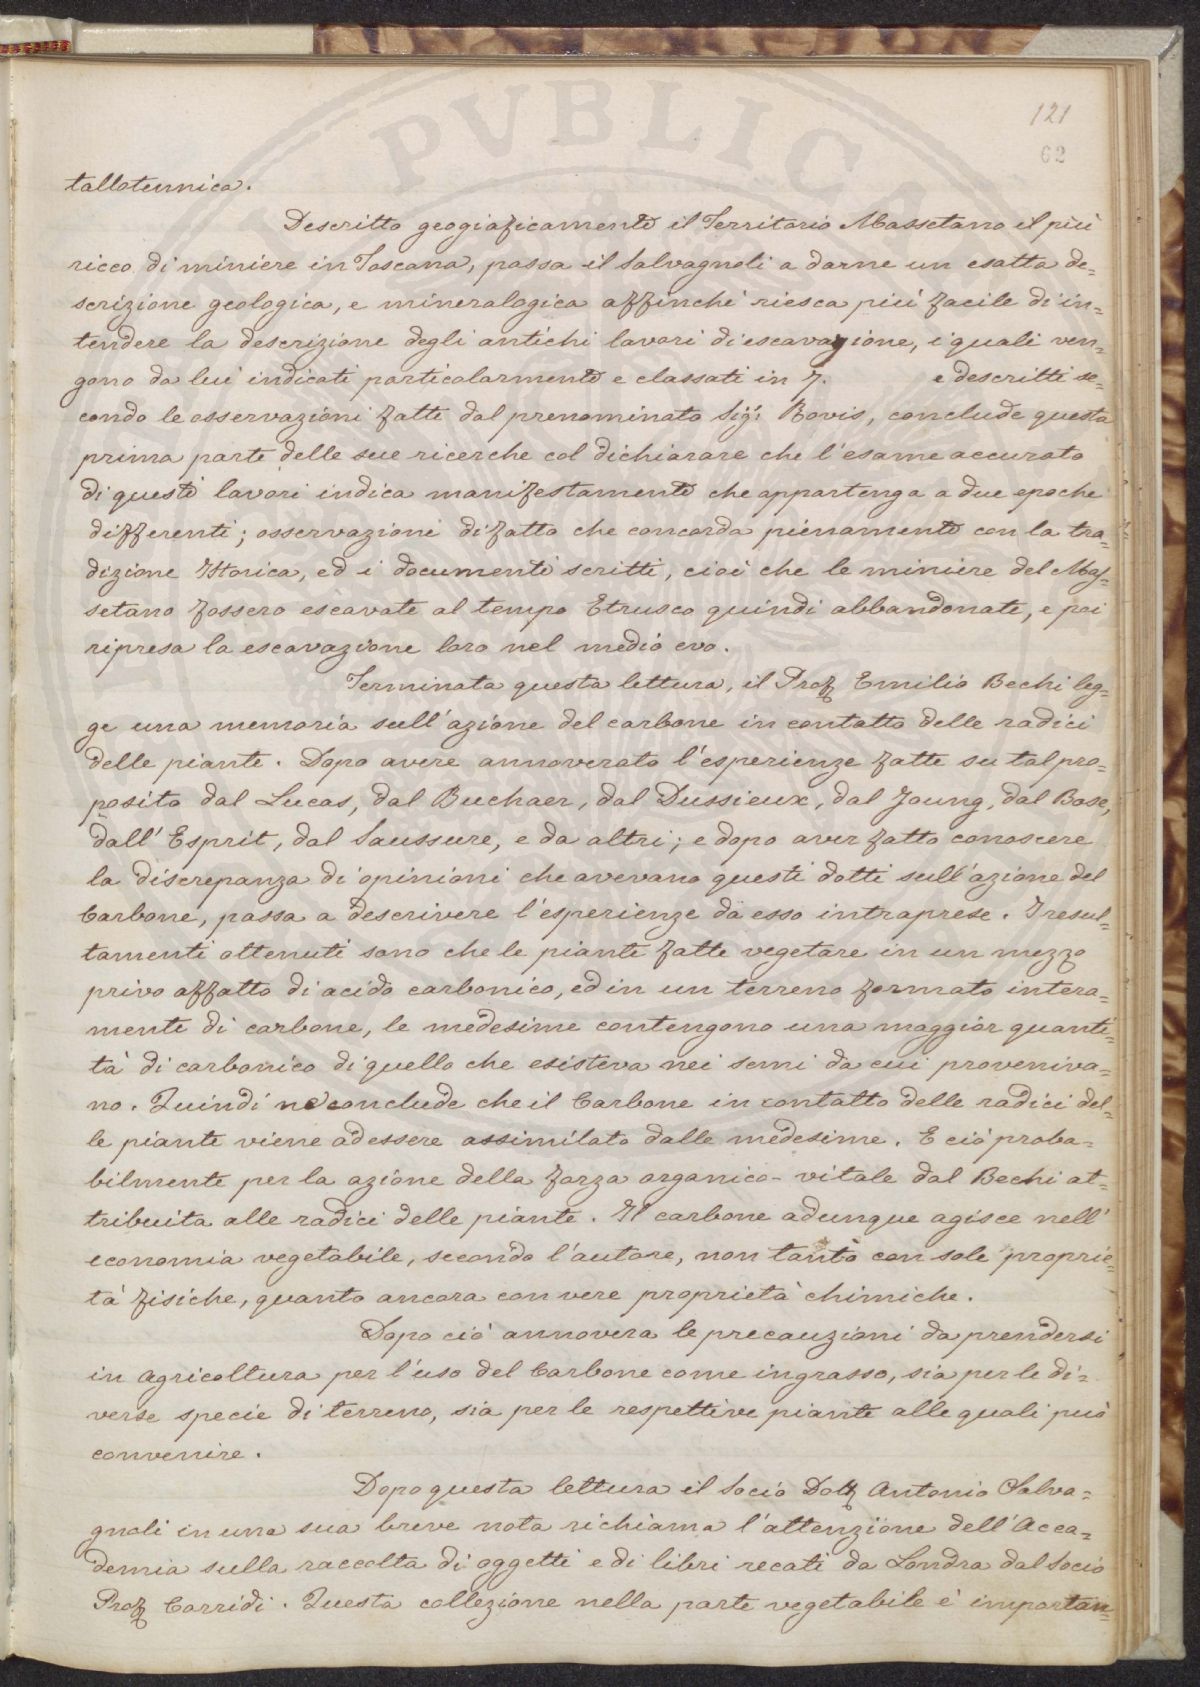 121
62
tallotecnica.
Descritto geograficamente il Territorio Massetano il più
ricco di miniere in Toscana, passa il Salvagnoli a darne un esatta de=
scrizione geologica, e mineralogica affinchè riesca più facile di in=
tendere la descrizione degli antichi lavori di escavazione, i quali ven=
gono da lui indicati particolarmente e classati in 7. e descritti se=
condo le osservazioni fatte dal prenominato Sig: Rovis, conclude questa
prima parte delle sue ricerche col dichiarare che l'esame accurato
di questi lavori indica manifestamente che appartenga a due epoche
differenti; osservazioni di fatto che concorda pienamente con la tra=
dizione Istorica, ed i documenti scritti, cioè che le miniere del Mas=
setano fossero escavate al tempo Etrusco quindi abbandonate, e poi
ripresa la escavazione loro nel medio evo.
Terminata questa lettura, il Prof Emilio Bechi leg=
ge una memoria sull'azione del carbone in contatto delle radici
delle piante. Dopo avere annoverato l'esperienze fatte su tal pro=
posito dal Lucas, dal Buchaer, dal Dussieux, dal Joung, dal Bose,
dall'Esprit, dal Saussure, e da altri; e dopo aver fatto conoscere
la discrepanza di opinioni che avevano questi dotti sull'azione del
Carbone, passa a descrivere l'esperienze da esso intraprese. I resul=
tamenti ottenuti sono che le piante fatte vegetare in un mezzo
privo affatto di acido carbonico, ed in un terreno formato intera=
mente di carbone, le medesime contengono una maggior quanti=
tà di carbonico di quello che esisteva nei semi da cui proveniva=
no. Quindi ne conclude che il Carbone in contatto delle radici del=
le piante viene ad essere assimilato dalle medesime. E ciò proba=
bilmente per la azione della forza organico-vitale dal Bechi at=
tribuita alle radici delle piante. Il carbone adunque agisce nell'
economia vegetabile, secondo l'autore, non tanto con sole proprie=
tà fisiche, quanto ancora con vere proprietà chimiche.
Dopo ciò annovera le precauzioni da prendersi
in agricoltura per l'uso del Carbone come ingrasso, sia per le di=
verse specie di terreno, sia per le respettive piante alle quali può
convenire.
Dopo questa lettura il Socio Dott Antonio Salva=
gnoli in una sua breve nota richiama l'attenzione dell'Acca=
demia sulla raccolta di oggetti e di libri recati da Londra dal Socio
Prof Corridi. Questa collezione nella parte vegetabile è importan=
PUBLIC